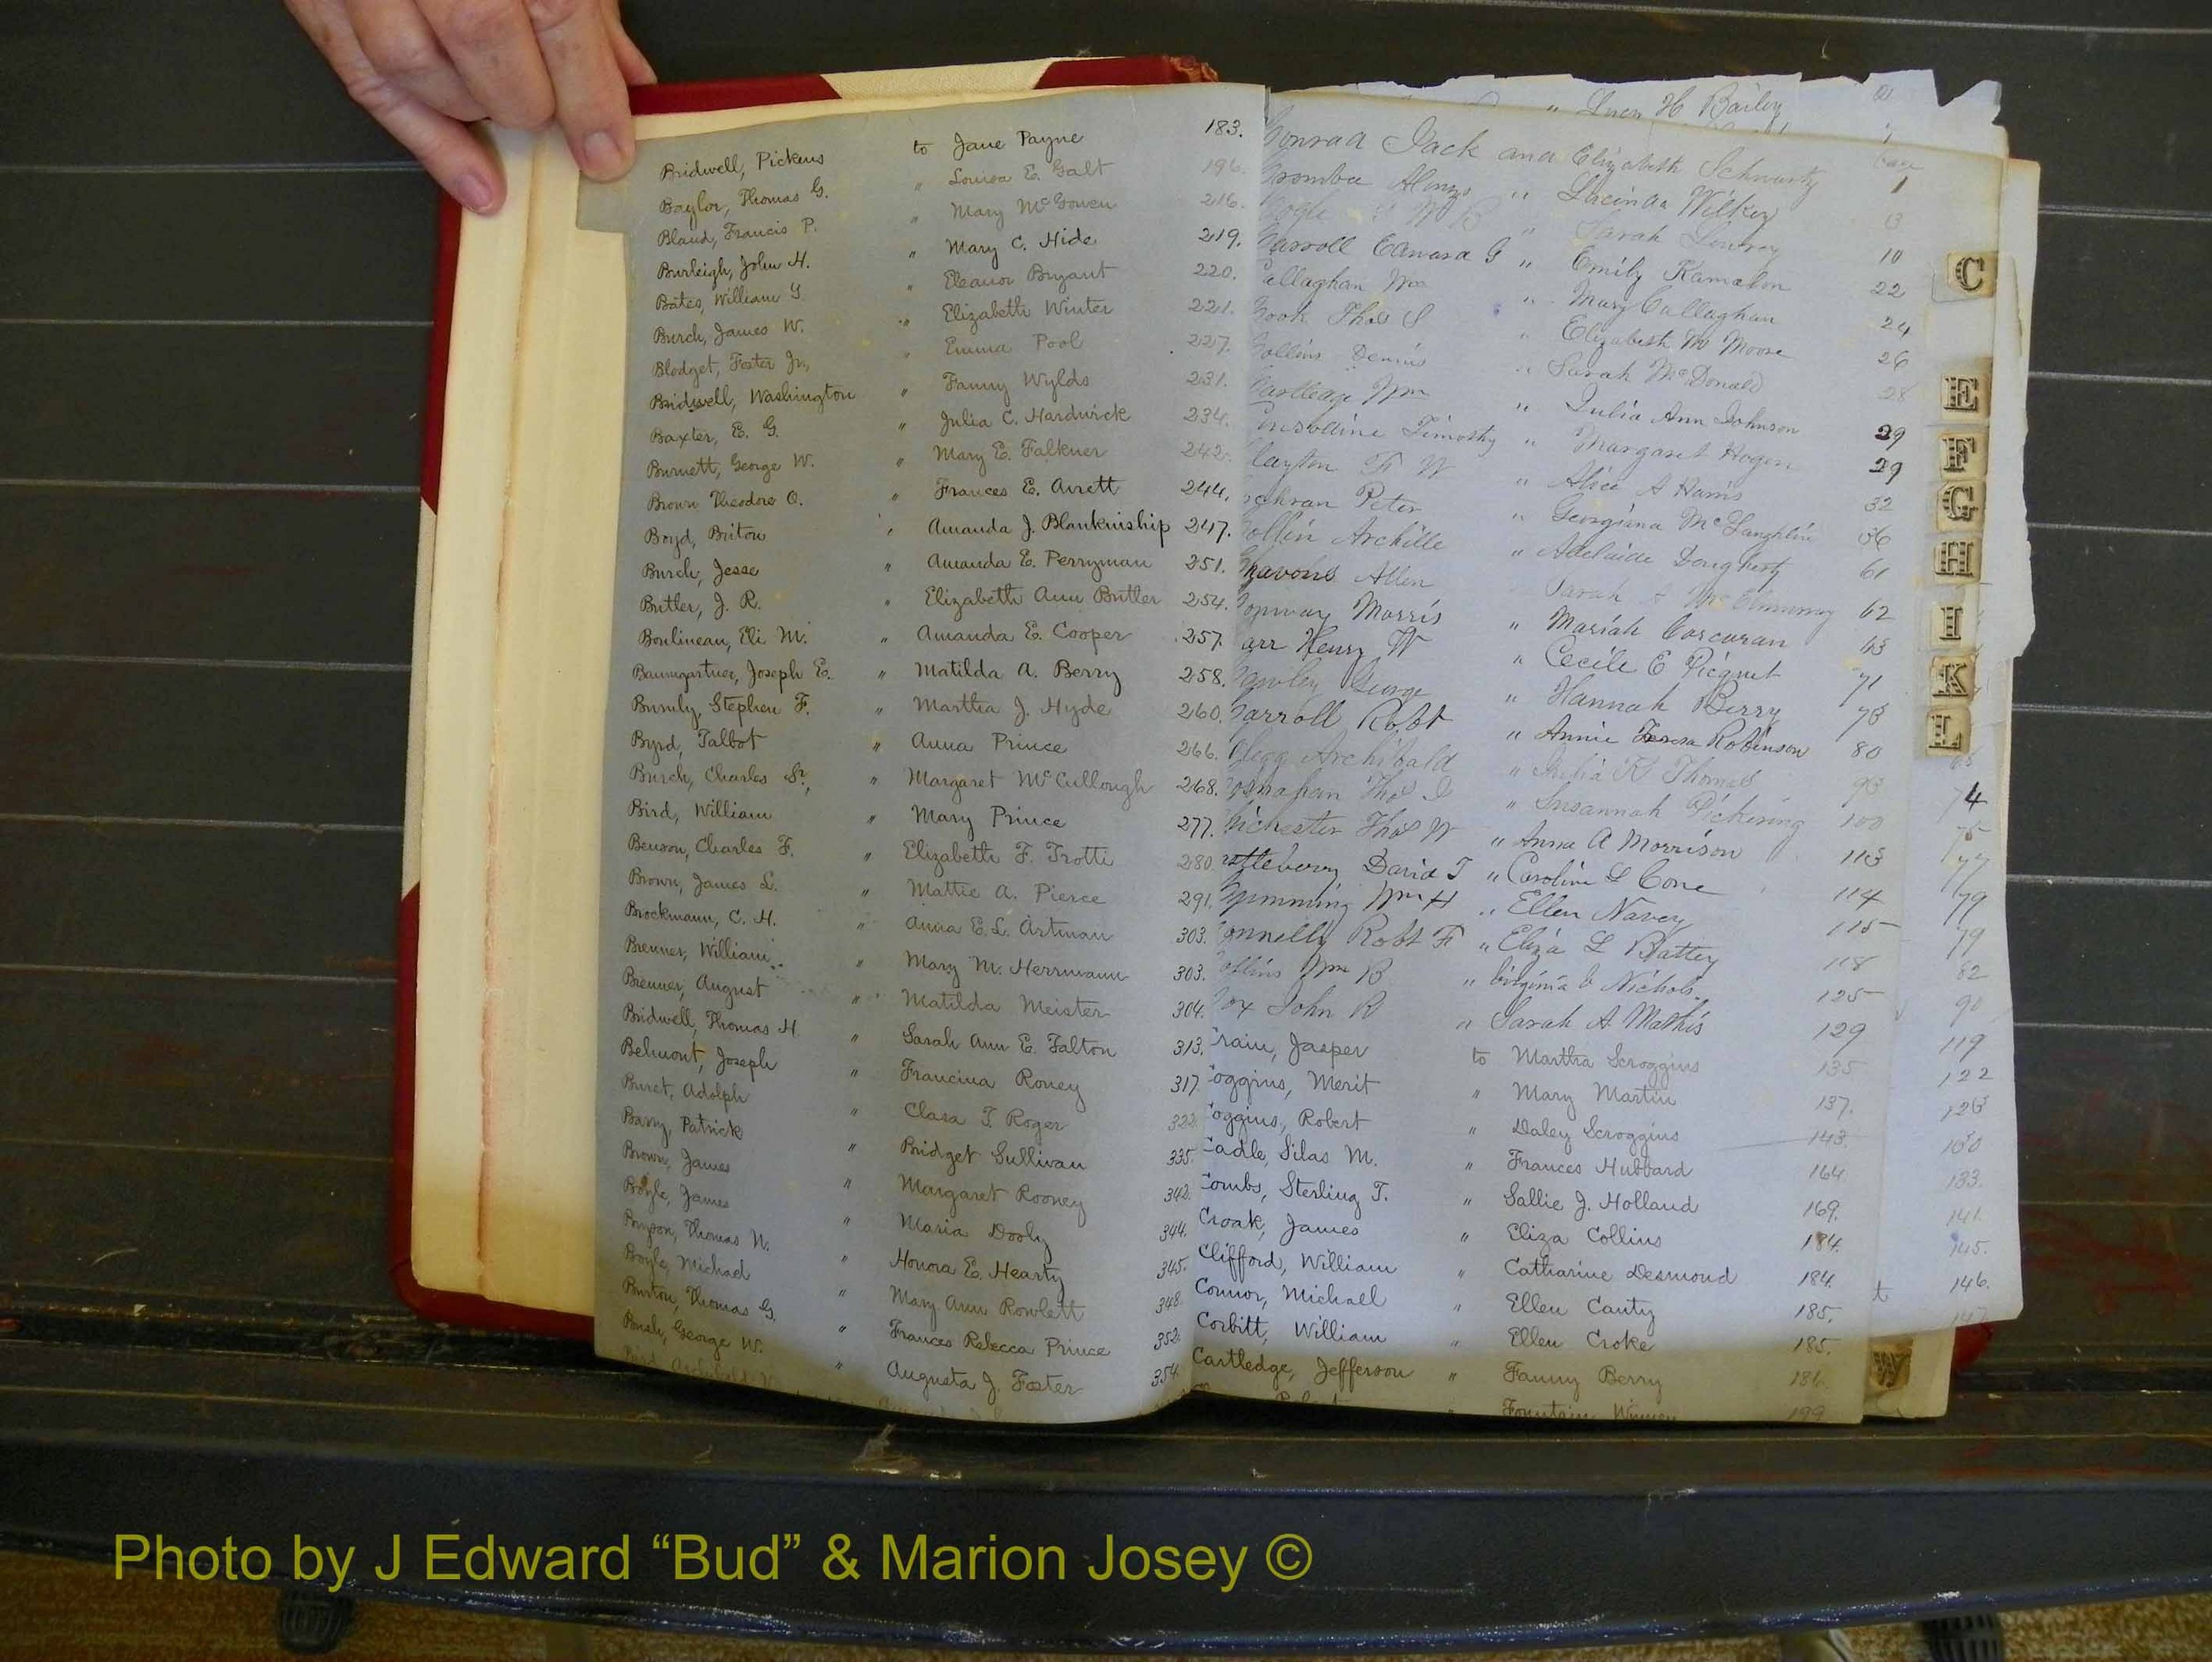 Bridwell, Pickens to Jane Payne 183.
Baylor, Thomas G. " Louisa E. Galt 196.
Bland, Francis P. " Mary McGowen 216.
Burleigh, John H. " Mary C. Hide 219.
Bates, William G. " Eleanor Bryant 220.
Burch, James W. " Elizabeth Winter 221.
Blodget, Foster Jr, " Emma Pool 227.
Bridwell, Washington " Fanny Wylds 231.
Baxter, E. G. " Julia C. Hardwick 234.
Burnett, George W. " Mary E. Falkner 242.
Brown Theodore O. " Frances E. Avrett 244.
Boyd, Briton " Amanda J. Blankinship 247.
Burch, Jesse " Amanda E. Perryman 251.
Butler, J. R. " Elizabeth Ann Butler 254.
Boulineau, Eli M. " Amanda E. Cooper 257.
Baumgartner, Joseph E. " Matilda A. Berry 258.
Stephen F. " Martha J. Hyde 260.
Byrd, Talbot " Anna Prince 266.
Burch, Charles Sr., " Margaret McCullough 268.
Bird, William " Mary Prince 277.
Benson, Charles F. " Elizabeth F. Trotti 280
Brown, James L. " Mattie A. Pierce 291.
Brockmann, C. H. " Anna E. L. Artman 303.
Brenner, William " Mary M. Herrmann 303.
Brenner, August " Matilda Meister 304.
Bridwell, Thomas H. " Sarah Ann E. Falton 313.
Belmont, Joseph " Francina Roney 317.
Buret, Adolph " Clara T Roger 322.
Barry, Patrick " Bridget Sullivan 335.
Brown, James " Margaret Rooney 342.
Boyle, James " Maria Dooly 344.
Bryson, Thomas N. " Honora E. Hearty 345.
Boyle, Michael " Mary Ann Rowlett 348.
Burton, Thomas G. " Frances Rebecca Prince 352.
Bush, George W. " Augusta J. Foster 354.
" H Bailey
Page
Conrad Jack and Elizabeth Schwartz 1
Alonzo " Lucinda Wilkey 13
" Sarah 10
Carroll Edward G " Emily 22
Callaghan Wm " Mary Callaghan 24
Cook Thos S " Elizabeth M Moore 26
Collins Dennis " Sarah McDonald 28
Cartledge Wm " Julia Ann Johnson 29
Timothy " Margaret Hogen 29
Clayton F W " Alice A Harris 32
Cochran Peter " Georgiana McLaughlin 36
Collin Archille " Adelaide Dougherty 61
Chavous Allen Sarah 62
Conway Morris " Mariah Corcoran 63
Carr Henry W " Cecile E Picquet 71
George " Hannah Berry 78
Carroll Robt " Annie Teresa Robinson 80
Clegg Archibald " Julia R Thomas 93
Thos " Susannah Pickering 100
Chichester Thos W " Anna A Morrison 113
Castleberry David T " Caroline L Cone 114
Cumming Wm H " Ellen Navey 115
Connelly Robt F " Eliza L Battey 118
Collins Wm B " Virginia C Nichols 125
Cox John R " Sarah A Mathis 129
Crain, Jasper to Martha Scroggins 135
Coggins, Merit " Mary Martin 137.
Coggins, Robert " Daley Scroggins 143.
Cadle, Silas M. " Frances Hubbard 164.
Combs, Sterling T. " Sallie J. Holland 169.
Croak, James " Eliza Collins 184.
Clifford, William " Catharine Desmond 184.
Connor, Michael " Ellen Canty 185.
Corbitt, William " Ellen Croke 185.
Cartledge, Jefferson " Fanny Berry 186.
Robert Fountain 199
C
E
F
G
H
I
K
L
W
74
75
77
79
79
82
90
119
122
123
130
133.
141.
145.
t 146.
147.
Photo by J Edward “Bud” & Marion Josey ©